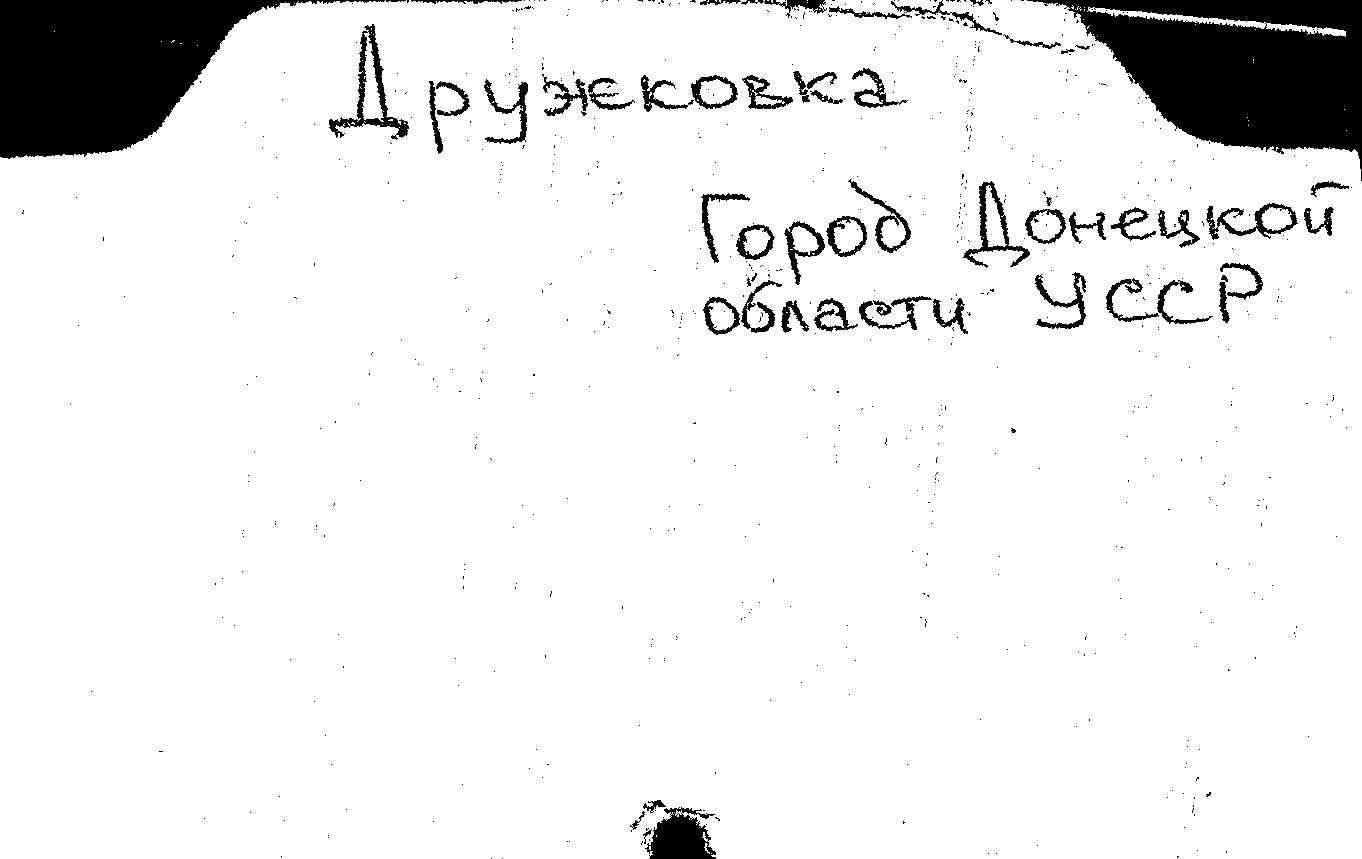 Дружковка
Город Донецкой
области УССР